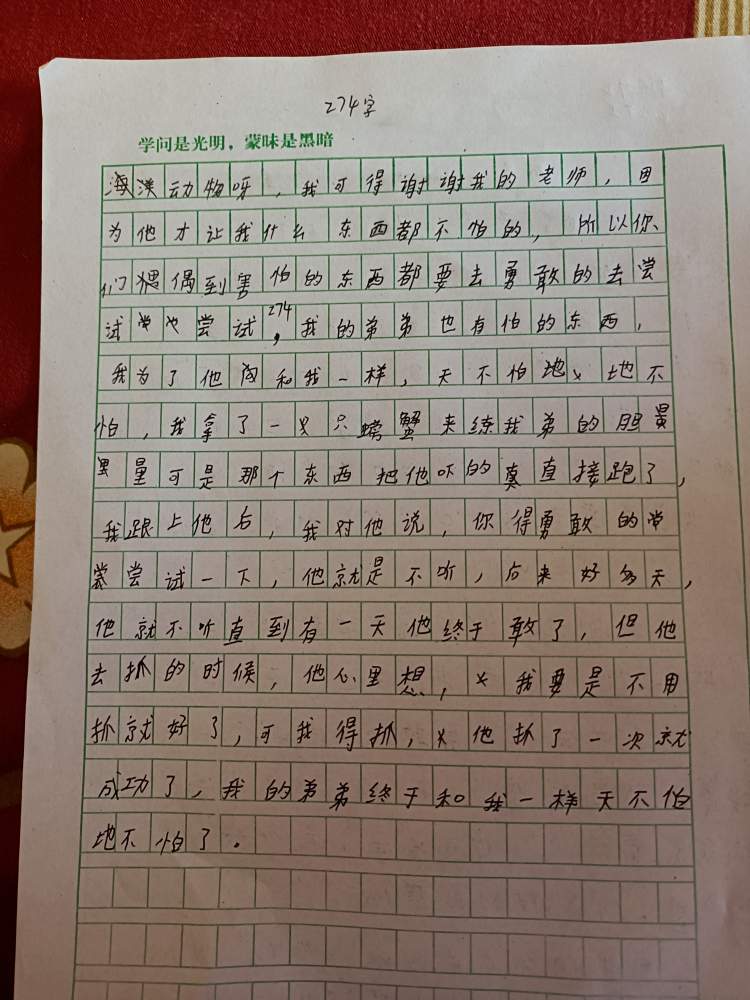 274字
学问是光明，蒙昧是黑暗
海洋动物呀，我可得谢谢我的老师，因
为他才让我什么东西都不怕的，所以你
们偶到害怕的东西都要去勇敢的去尝
试尝试，274我的弟弟也有怕的东西，
我为了他向和我一样，天不怕地不
怕，我拿了一只螃蟹来练我弟的胆
量可是那个东西把他吓的直接跑了，
我跟上他后，我对他说，你得勇敢的
尝试一下，他就是不听，后来好多天，
他就不听直到有一天他终于敢了，但他
去抓的时候，他心里想，我要是不用
抓就好了，可我得抓，他抓了一次就
成功了，我的弟弟终于和我一样天不怕
地不怕了。